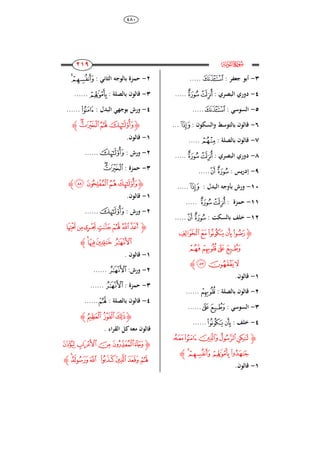 ٤٨٠
٢١٩
٣- أبو جعفر : ﴿ٱسۡتَـٔۡذَنَكَ﴾ .....
٤- دوري البصري : ﴿أُنزِلَت سُّورَةٌ﴾ ....
٥- السوسي : ﴿ٱسۡتَـٔۡذَنَكَ﴾ .....
٦- قالون بالتوسط والسكون : ﴿وَإِذَآ﴾ ...
٧- قالون بالصلة : ﴿مِنۡهُمۡ﴾ .....
٨- دوري البصري : ﴿أُنزِلَت سُّورَةٌ﴾ ....
٩- إدريس : ﴿سُورَةٌ أَنۡ﴾ .....
١٠- ورش بأوجه البدل : ﴿وَإِذَآ﴾ .....
١١- حمزة : ﴿أُنزِلَت سُّورَةٌ﴾ .....
١٢- خلف بالسكت : ﴿سُورَةٌ أَنۡ﴾ .....
﴿رَضُوا۟ بِأَن يَكُونُوا۟ مَعَ ٱلۡخَوَالِفِ
وَطُبِعَ عَلَىٰ قُلُوبِهِمۡ فَهُمۡ
لَا يَفۡقَهُونَ ٨٧﴾
١- قالون.
٢- قالون بالصلة : ﴿قُلُوبِهِمۡ﴾ ......
٣- السوسي : ﴿وَطُبِعَ عَلَىٰ﴾ ......
٤- خلف : ﴿بِأَن يَكُونُوا۟﴾ ......
﴿لَـٰكِنِ ٱلرَّسُولُ وَٱلَّذِينَ ءَامَنُوا۟ مَعَهُۥ
جَـٰهَدُوا۟ بِأَمۡوَٰلِهِمۡ وَأَنفُسِهِمۡ﴾
١- قالون.
٢- حمزة بالوجه الثاني : ﴿وَأَنفُسِهِمۡ﴾
٣- قالون بالصلة : ﴿بِأَمۡوَٰلِهِمۡ﴾ ......
٤- ورش بوجهي البدل : ﴿ءَامَنُوا۟﴾ ......
﴿وَأُو۟لَـٰٓئِكَ لَهُمُ ٱلۡخَيۡرَٰتُ﴾
١- قالون.
٢- ورش : ﴿وَأُو۟لَـٰٓئِكَ﴾ ......
٣- حمزة : ﴿ٱلۡخَيۡرَٰتُ﴾
﴿وَأُو۟لَـٰٓئِكَ هُمُ ٱلۡمُفۡلِحُونَ ٨٨﴾
١- قالون.
٢- ورش : ﴿وَأُو۟لَـٰٓئِكَ﴾ ......
﴿أَعَدَّ ٱللَّهُ لَهُمۡ جَنَّـٰتٍ تَجۡرِى مِن تَحۡتِهَا
ٱلۡأَنۡهَـٰرُ خَـٰلِدِينَ فِيهَا﴾
١- قالون .
٢- ورش: ﴿ٱلۡأَنۡهَـٰرُ﴾ ......
٣- حمزة : ﴿ٱلۡأَنۡهَـٰرُ﴾ ......
٤- قالون بالصلة : ﴿لَهُمۡ﴾ ......
﴿ذَٰلِكَ ٱلۡفَوۡزُ ٱلۡعَظِيمُ﴾
قالون معه كل القراء .
﴿وَجَآءَ ٱلۡمُعَذِّرُونَ مِنَ ٱلۡأَعۡرَابِ لِيُؤۡذَنَ
لَهُمۡ وَقَعَدَ ٱلَّذِينَ كَذَبُوا۟ ٱللَّهَ وَرَسُولَهُۥ﴾